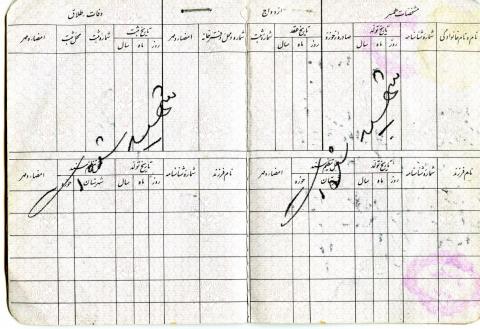 مشخصات همسر
ازدواج
وفات، طلاق
نام و نام خانوادگی
شماره شناسنامه
تاریخ تولد
روز ماه سال
صادره از حوزه
تاریخ عقد
روز ماه سال
شماره ثبت
شماره و محل دفترخانه
امضاء و مهر
تاریخ ثبت
روز ماه سال
شماره ثبت
محل ثبت
امضاء و مهر
شهید شد
شهید شد
نام فرزند
شماره شناسنامه
تاریخ تولد
روز ماه سال
محل تنظیم سند
شهرستان
حوزه
امضاء و مهر
نام فرزند
شماره شناسنامه
تاریخ تولد
روز ماه سال
محل تنظیم سند
شهرستان
حوزه
امضاء و مهر